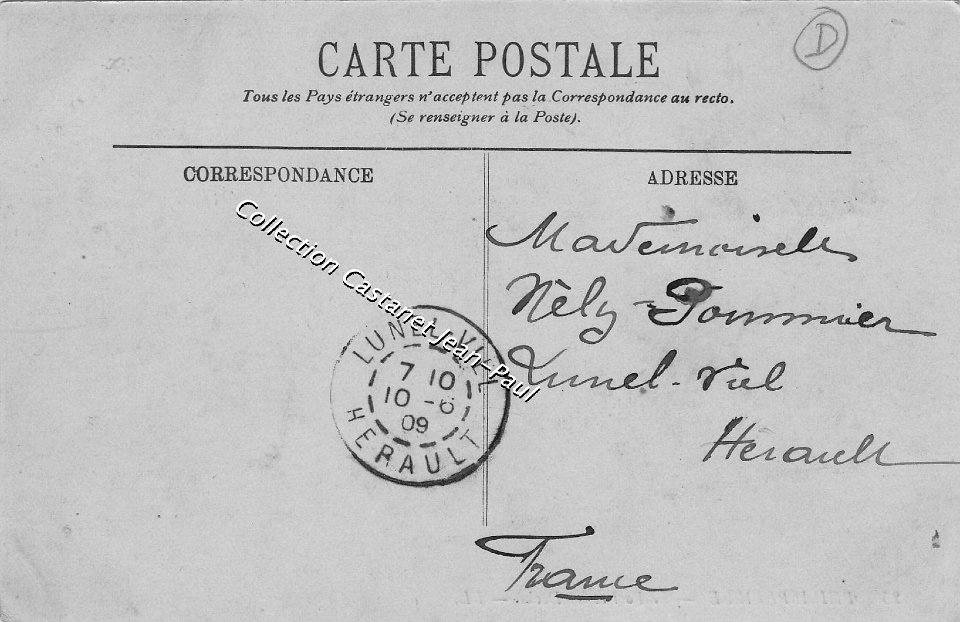 D
CARTE POSTALE
Tous les Pays étrangers n'acceptent pas la Correspondance au recto.
(Se renseigner à la Poste).
CORRESPONDANCE
ADRESSE
Collection Castanet Jean-Paul
Mademoiselle
Nèly-Pommier
Lunel-Viel
Hérault
France
LUNEL-VIEL
7 10
10 - 6
09
HERAULT